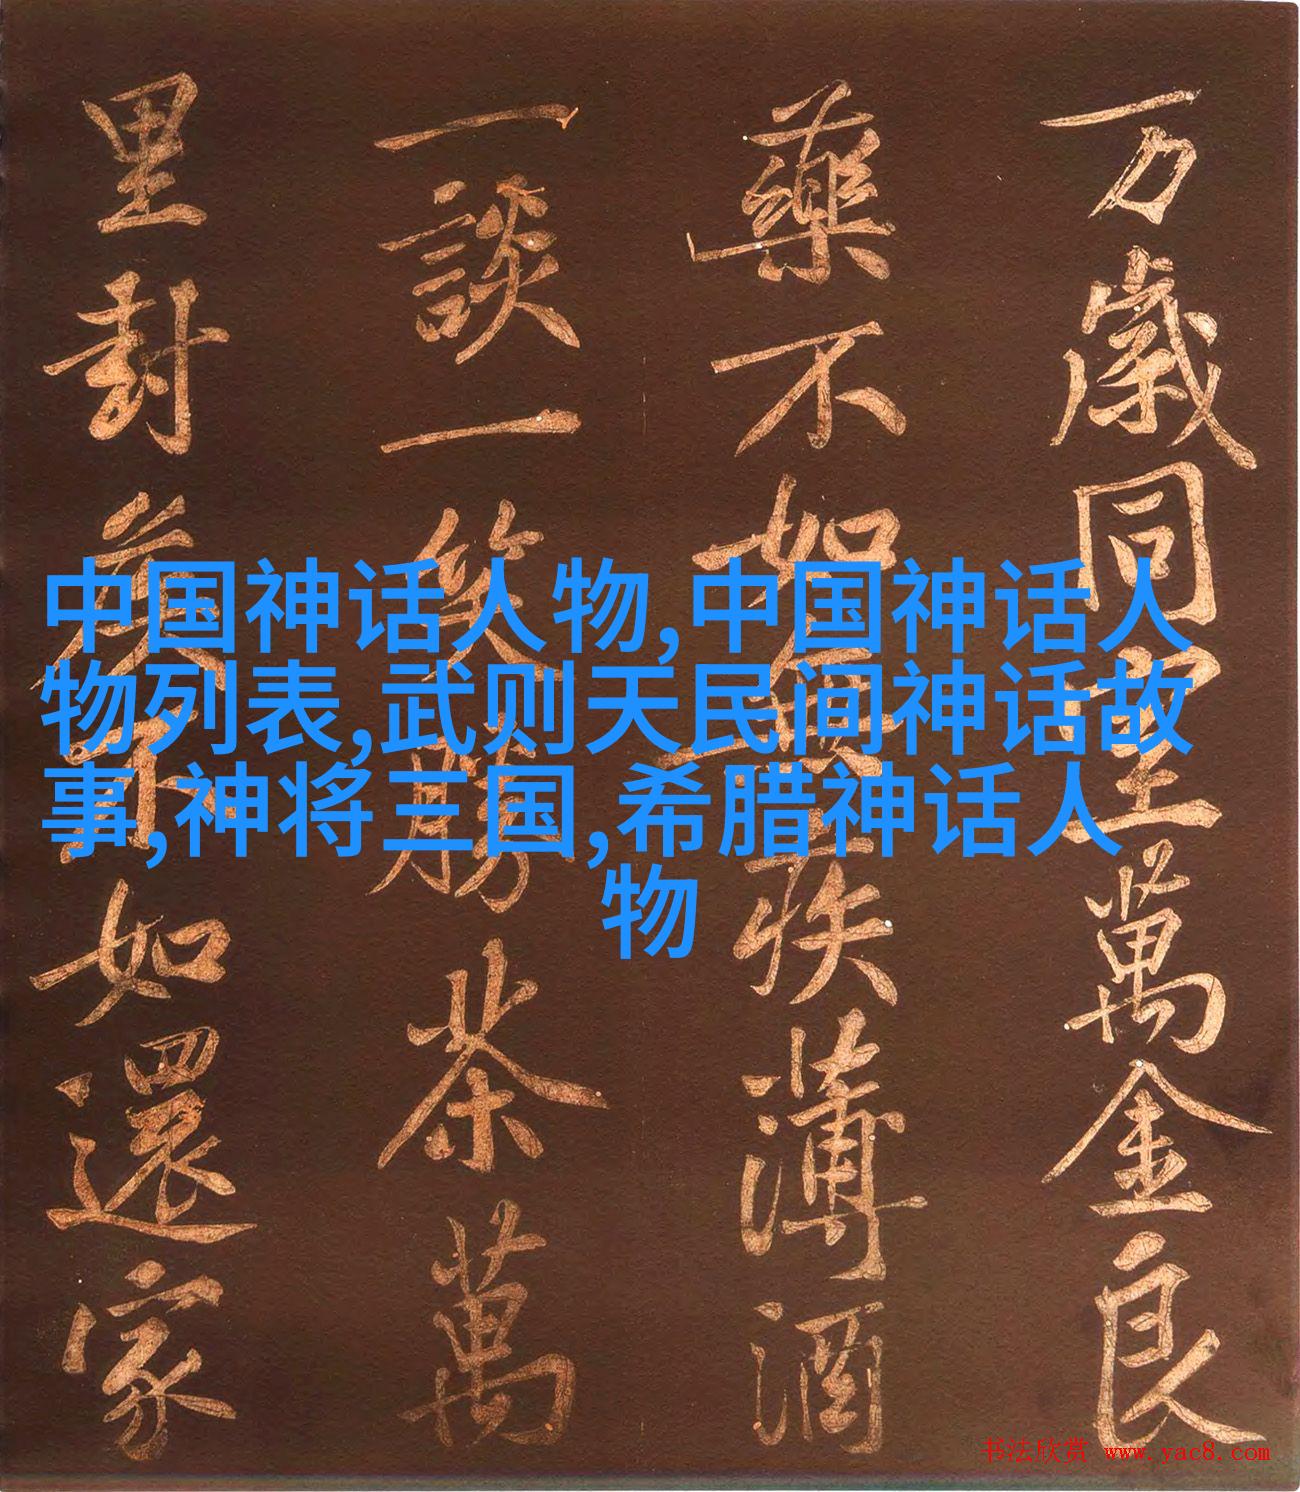 万歲同室萬金良
藥不如無疾薄酒
一談一笑勝茶萬
里封侯不如還家
中国神话人物,中国神话人
物列表,武则天民间神话故
事,神将三国,希腊神话人
物
书法欣赏 www.yac8.com